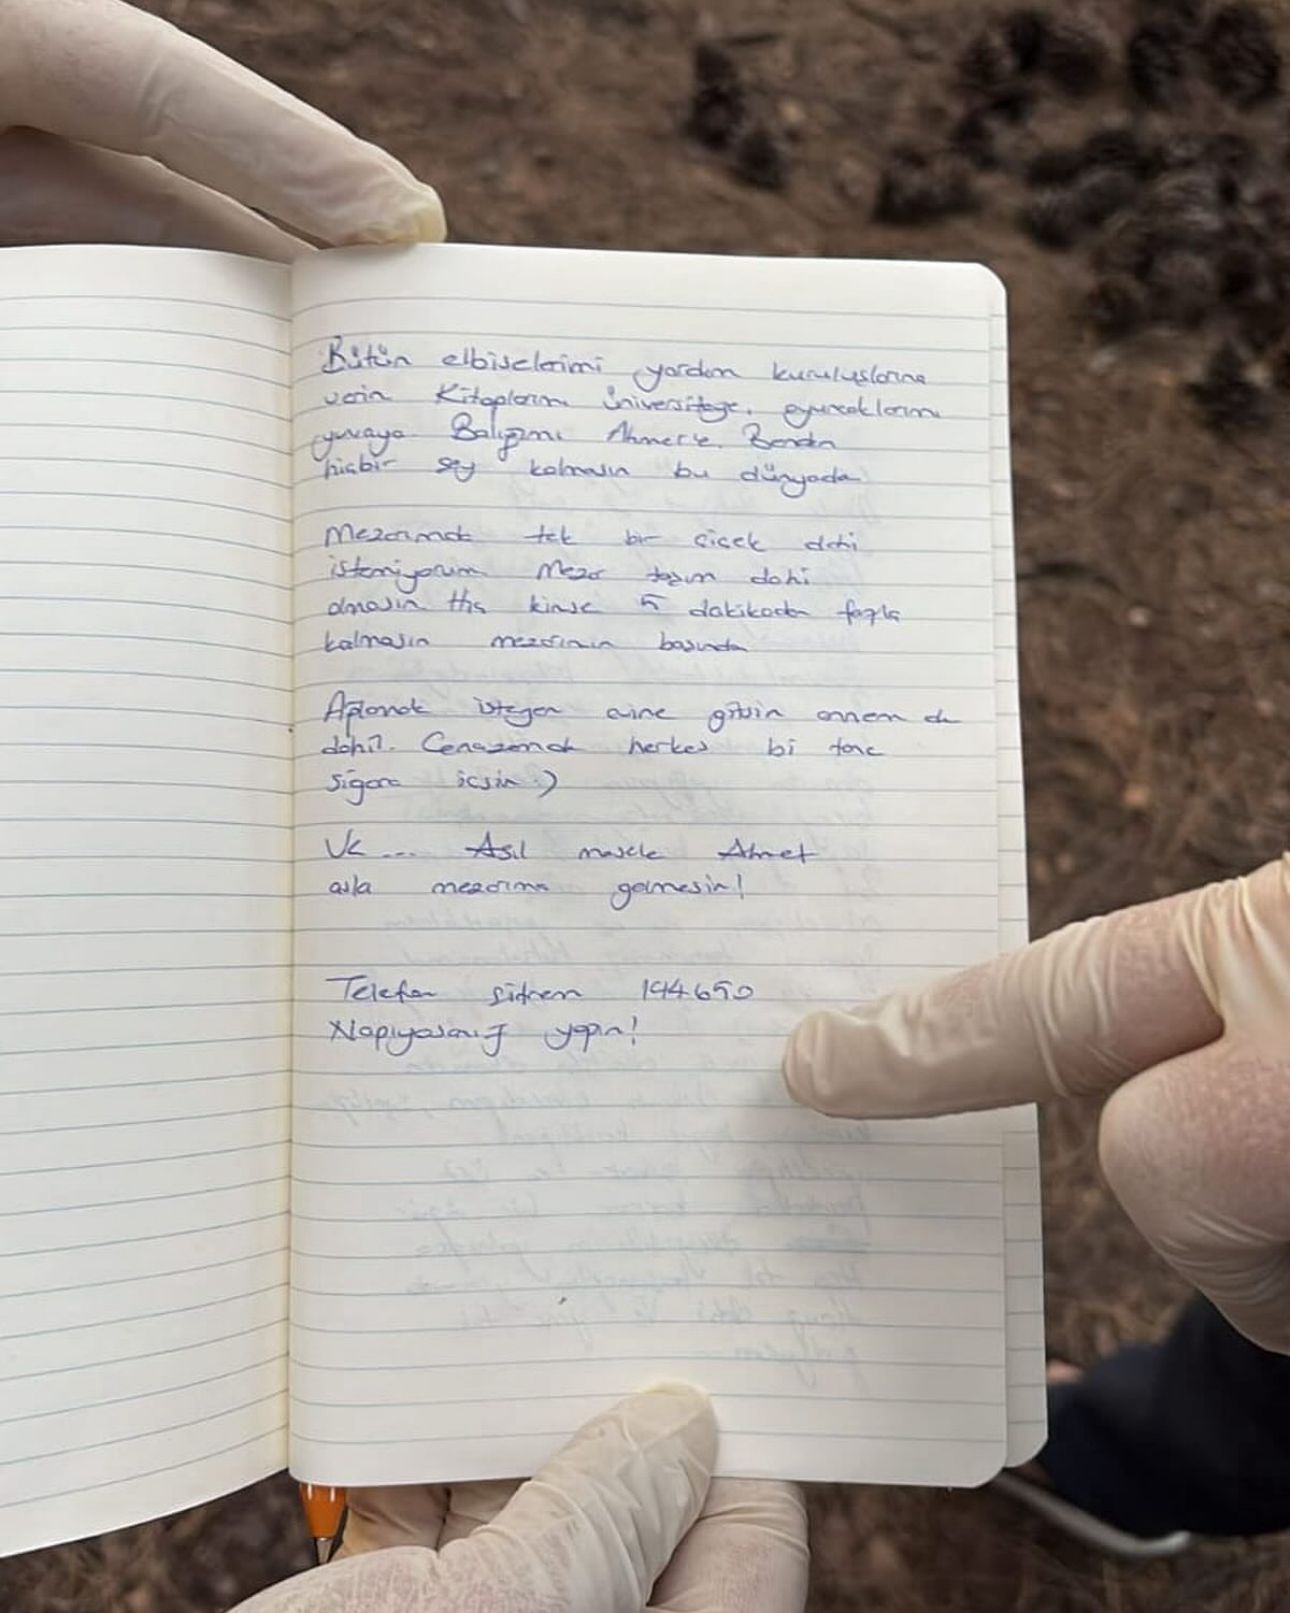 Bütün elbiselerimi yardım kuruluşlarına
verin Kitaplarımı üniversiteye, oyuncaklarımı
yuvaya. Balığımı Ahmet'e. Benden
hiçbir şey kalmasın bu dünyada
Mezarımda tek bir çiçek dahi
istemiyorum Mezar taşım dahi
olmasın Hiç kimse 5 dakikadan fazla
kalmasın mezarımın başında
Ağlamak isteyen evine gitsin annem de
dahil. Cenazemde herkes bi tane
sigara içsin :)
Ve .... Asıl mesele Ahmet
asla mezarıma gelmesin!
Telefon şifrem 194650
Napıyosanız yapın!